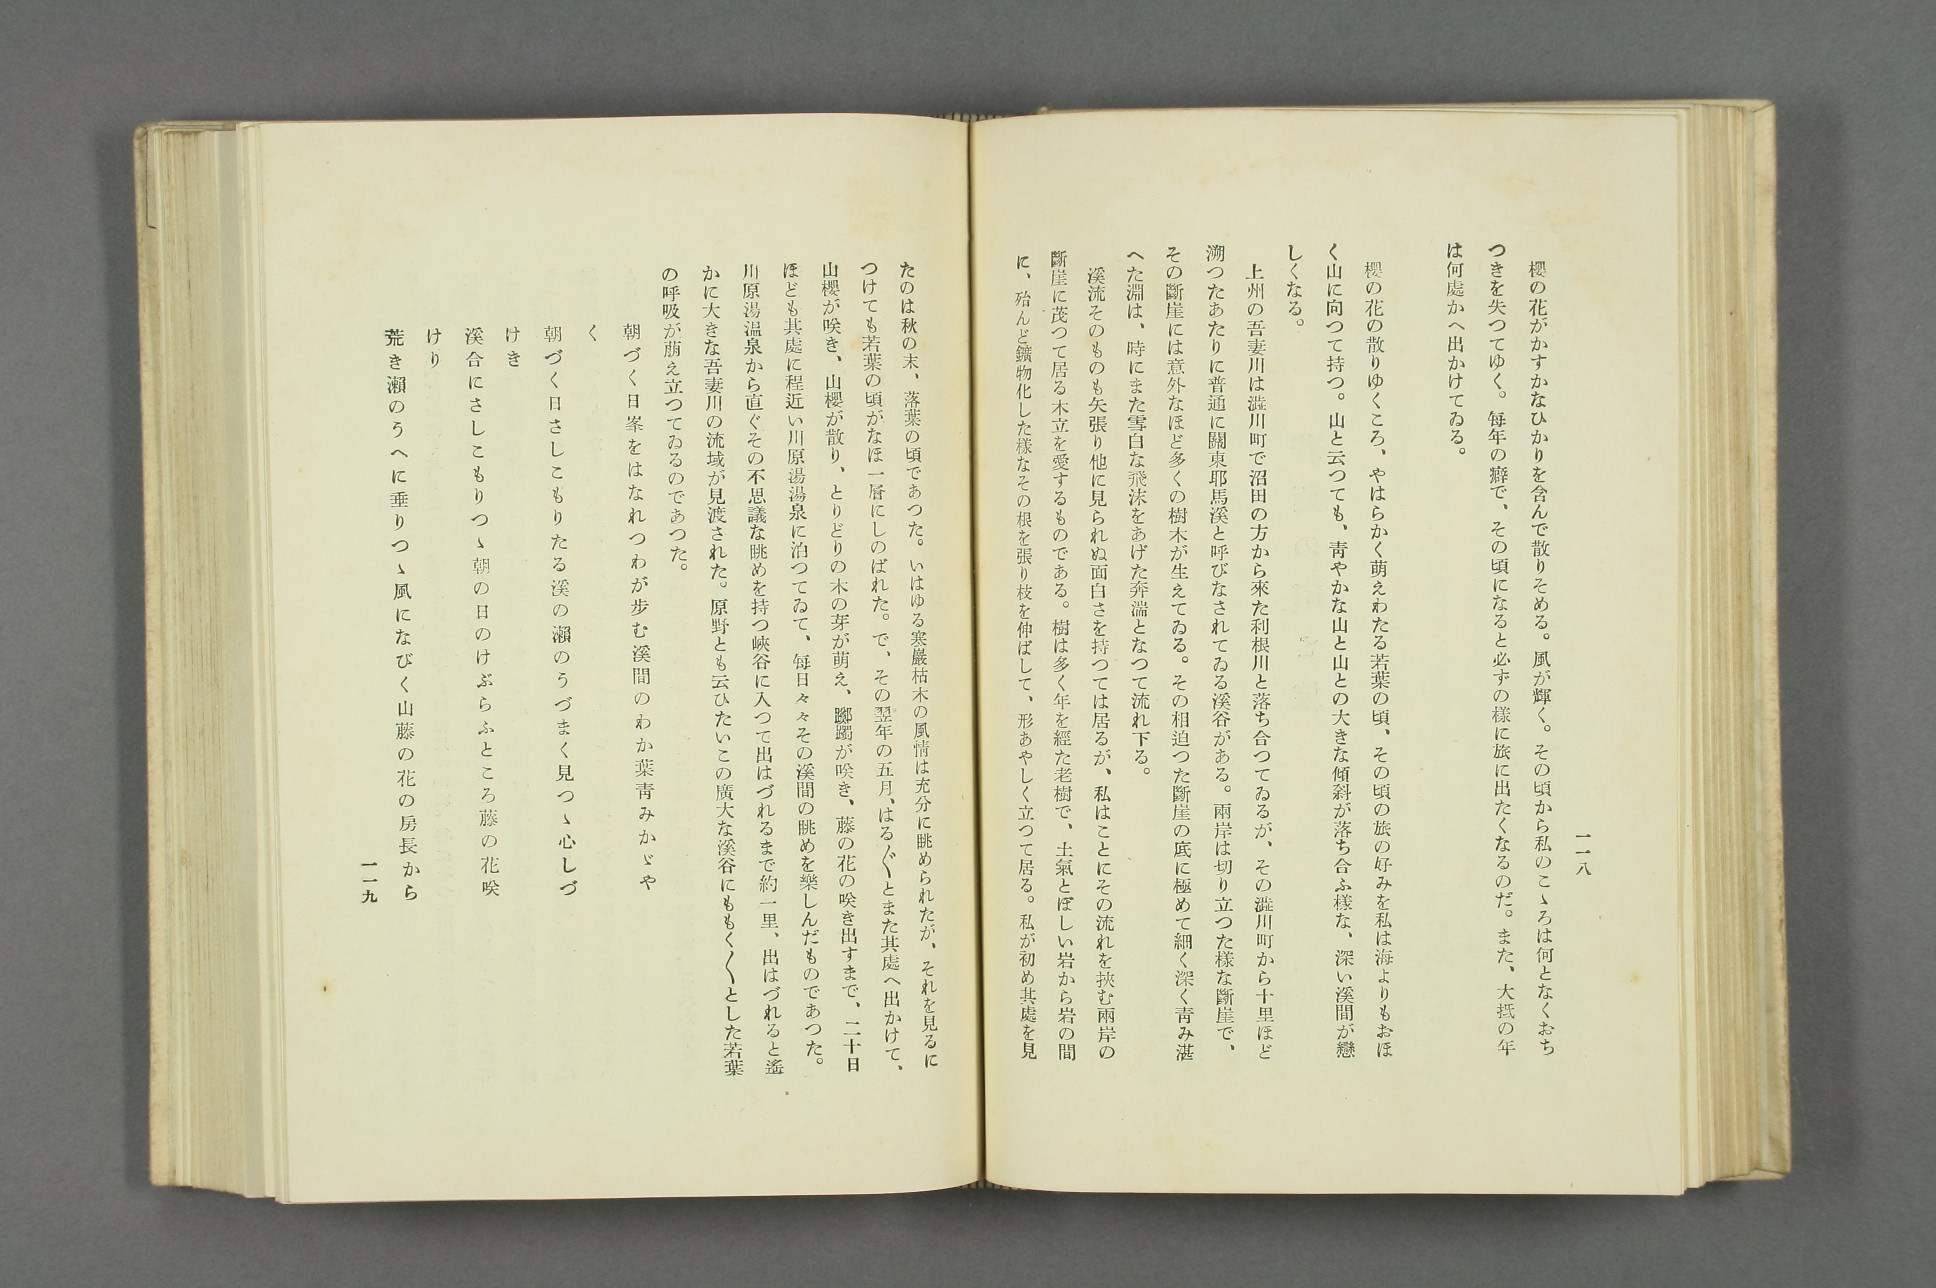 櫻の花がかすかなひかりを含んで散りそめる。風が輝く。その頃から私のこゝろは何となくおち
つきを失つてゆく。毎年の癖で、その頃になると必ずの樣に旅に出たくなるのだ。また、大抵の年
は何處かへ出かけてゐる。
櫻の花の散りゆくころ、やはらかく萌えわたる若葉の頃、その頃の旅の好みを私は海よりもおほ
く山に向つて持つ。山と云つても、靑やかな山と山との大きな傾斜が落ち合ふ樣な、深い溪間が戀
しくなる。
上州の吾妻川は澁川町で沼田の方から來た利根川と落ち合つてゐるが、その澁川町から十里ほど
溯つたあたりに普通に關東耶馬溪と呼びなされてゐる溪谷がある。兩岸は切り立つた樣な斷崖で、
その斷崖には意外なほど多くの樹木が生えてゐる。その相迫つた斷崖の底に極めて細く深く靑み湛
へた淵は、時にまた雪白な飛沫をあげた奔湍となつて流れ下る。
溪流そのものも矢張り他に見られぬ面白さを持つては居るが、私はことにその流れを挾む兩岸の
斷崖に茂つて居る木立を愛するものである。樹は多く年を經た老樹で、土氣とぼしい岩から岩の間
に、殆んど鑛物化した樣なその根を張り枝を伸ばして、形あやしく立つて居る。私が初め其處を見
一一八
たのは秋の末、落葉の頃であつた。いはゆる寒巖枯木の風情は充分に眺められたが、それを見るに
つけても若葉の頃がなほ一層にしのばれた。で、その翌年の五月、はる〲とまた其處へ出かけて、
山櫻が咲き、山櫻が散り、とりどりの木の芽が萌え、躑躅が咲き、藤の花の咲き出すまで、二十日
ほども其處に程近い川原湯湯泉に泊つてゐて、每日々々その溪間の眺めを樂しんだものであつた。
川原湯温泉から直ぐその不思議な眺めを持つ峽谷に入つて出はづれるまで約一里、出はづれると遙
かに大きな吾妻川の流域が見渡された。原野とも云ひたいこの廣大な溪谷にももく〳〵とした若葉
の呼吸が萠え立つてゐるのであつた。
朝づく日峯をはなれつわが步む溪間のわか葉靑みかゞや
く
朝づく日さしこもりたる溪の瀨のうづまく見つゝ心しづ
けき
溪合にさしこもりつゝ朝の日のけぶらふところ藤の花咲
けり
荒き瀨のうへに垂りつゝ風になびく山藤の花の房長から
一一九